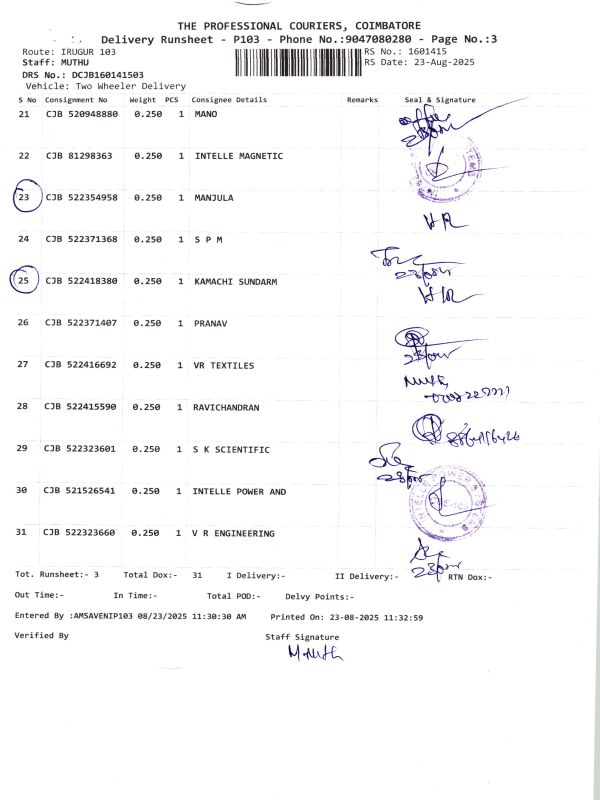 THE PROFESSIONAL COURIERS, COIMBATORE
Delivery Runsheet - P103 - Phone No.:9047080280 - Page No.:3
Route: IRUGUR 103 RS No.: 1601415
Staff: MUTHU RS Date: 23-Aug-2025
DRS No.: DCJB160141503
Vehicle: Two Wheeler Delivery
S No Consignment No Weight PCS Consignee Details Remarks Seal & Signature
21 CJB 520948880 0.250 1 MANO
22 CJB 81298363 0.250 1 INTELLE MAGNETIC
23 CJB 522354958 0.250 1 MANJULA
24 CJB 522371368 0.250 1 S P M
25 CJB 522418380 0.250 1 KAMACHI SUNDARM
26 CJB 522371407 0.250 1 PRANAV
27 CJB 522416692 0.250 1 VR TEXTILES
28 CJB 522415590 0.250 1 RAVICHANDRAN
29 CJB 522323601 0.250 1 S K SCIENTIFIC
30 CJB 521526541 0.250 1 INTELLE POWER AND
31 CJB 522323660 0.250 1 V R ENGINEERING
Tot. Runsheet:- 3 Total Dox:- 31 I Delivery:- II Delivery:- RTN Dox:-
Out Time:- In Time:- Total POD:- Delvy Points:-
Entered By :AMSAVENIP103 08/23/2025 11:30:30 AM Printed On: 23-08-2025 11:32:59
Verified By Staff Signature